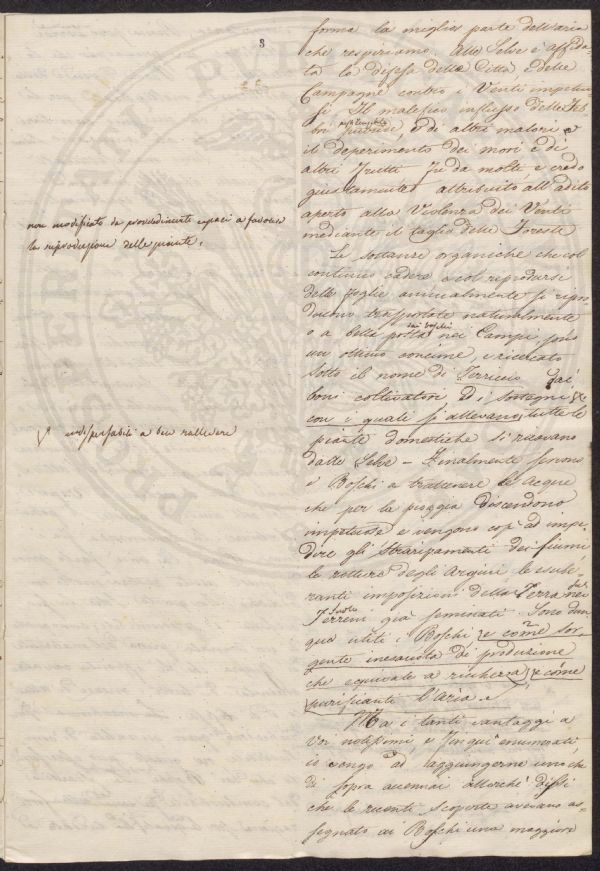 8
forma la miglior parte dell'aria
che respiriamo. Alle Selve è affida-
ta la difesa delle Città e delle
Campagne contro i Venti impetuo-
si. Il malefico influsso delle Feb-
bri pestilenziali e di altri malori e
il deperimento dei mori e di
altri Frutti fu da molti e credo
giustamente attribuito all'adito
aperto alla Violenza dei Venti
mediante il taglio delle Foreste
non modificato da provvedimenti capaci a favorire
la riproduzione delle piante.
Le sostanze organiche che col
continuo cadere e col riprodursi
delle foglie annualmente si ripro
ducono trasportate naturalmente
o a bella posta dai boschi nei Campi sono
un ottimo concime, e ricercato
sotto il nome di Terriccio dai
boni coltivatori ed i sostegni
con i quali si allevano tutte le
indispensabili a ben rallevare
piante domestiche si ricavano
dalle Selve – Finalmente servono
i Boschi a trattenere le Acque
che per la pioggia discendono
impetuose e vengono così ad impe
dire gli straripamenti dei fiumi
le rotture degli Argini le esube-
ranti imposizioni della Terra nei
Terreni già seminati. Sono dun
que utili i Boschi e come sor-
gente inesausta di produzione
che equivale a ricchezza, e come
purificanti l'Aria.
Ma i tanti vantaggi a
Voi notissimi e fin qui enumerati
io vengo ad aggiungerne uno che
di sopra accennai allorchè dissi
che le recenti scoperte avevano as-
segnato ai Boschi una maggiore